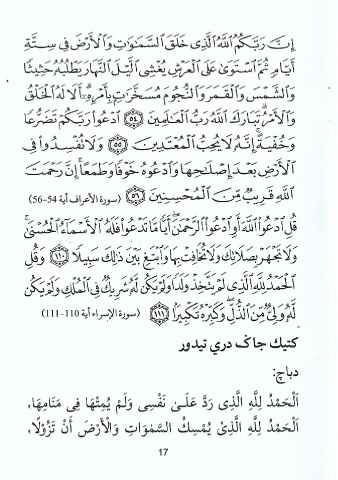 إِنَّ رَبَّكُمُ اللَّهُ الَّذِي خَلَقَ السَّمَاوَاتِ وَالْأَرْضَ فِي سِتَّةِ
أَيَّامٍ ثُمَّ اسْتَوَىٰ عَلَى الْعَرْشِ يُغْشِي اللَّيْلَ النَّهَارَ يَطْلُبُهُ حَثِيثًا
وَالشَّمْسَ وَالْقَمَرَ وَالنُّجُومَ مُسَخَّرَاتٍ بِأَمْرِهِ ۗ أَلَا لَهُ الْخَلْقُ
وَالْأَمْرُ ۗ تَبَارَكَ اللَّهُ رَبُّ الْعَالَمِينَ ﴿٥٤﴾ ادْعُوا رَبَّكُمْ تَضَرُّعًا
وَخُفْيَةً ۚ إِنَّهُ لَا يُحِبُّ الْمُعْتَدِينَ ﴿٥٥﴾ وَلَا تُفْسِدُوا فِي
الْأَرْضِ بَعْدَ إِصْلَاحِهَا وَادْعُوهُ خَوْفًا وَطَمَعًا ۚ إِنَّ رَحْمَتَ
اللَّهِ قَرِيبٌ مِّنَ الْمُحْسِنِينَ ﴿٥٦﴾ (سورة الأعراف أية 54-56)
قُلِ ادْعُوا اللَّهَ أَوِ ادْعُوا الرَّحْمَٰنَ ۖ أَيًّا مَّا تَدْعُوا فَلَهُ الْأَسْمَاءُ الْحُسْنَىٰ ۚ
وَلَا تَجْهَرْ بِصَلَاتِكَ وَلَا تُخَافِتْ بِهَا وَابْتَغِ بَيْنَ ذَٰلِكَ سَبِيلًا ﴿١١٠﴾ وَقُلِ
الْحَمْدُ لِلَّهِ الَّذِي لَمْ يَتَّخِذْ وَلَدًا وَلَمْ يَكُن لَّهُ شَرِيكٌ فِي الْمُلْكِ وَلَمْ يَكُن
لَّهُ وَلِيٌّ مِّنَ الذُّلِّ ۖ وَكَبِّرْهُ تَكْبِيرًا ﴿١١١﴾ (سورة الإسراء أية 110-111)
كتيك جاݢ دري تيدور
دباچ:
اَلْحَمْدُ لِلَّهِ الَّذِى رَدَّ عَلَىَّ نَفْسِى وَلَمْ يُمِتْهَا فِى مَنَامِهَا،
اَلْحَمْدُ لِلَّهِ الَّذِىْ يُمْسِكُ السَّمٰوَاتِ وَالْأَرْضَ أَنْ تَزُوْلَا،
17